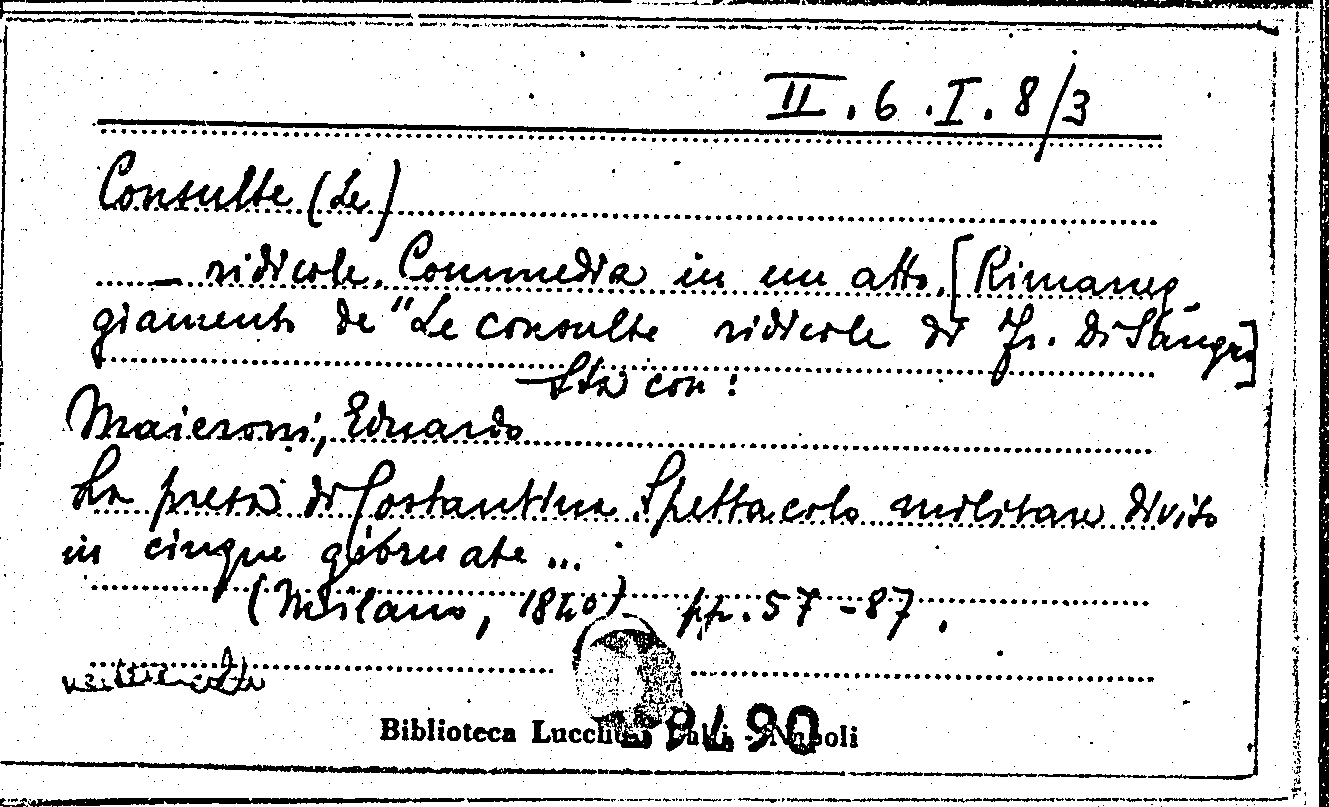 II.6.I.8/3
Consulte (Le)
— ridicole. Commedia in un atto. [Rimaneg-
giamento de "Le consulte ridicole di Fr. Di Sangro]
Sta con:
Maieroni, Eduardo
La presa di Costantina. Spettacolo militare diviso
in cinque giornate...
(Milano, 1840) pp. 57-87.
Biblioteca Lucchesi Palli - Napoli